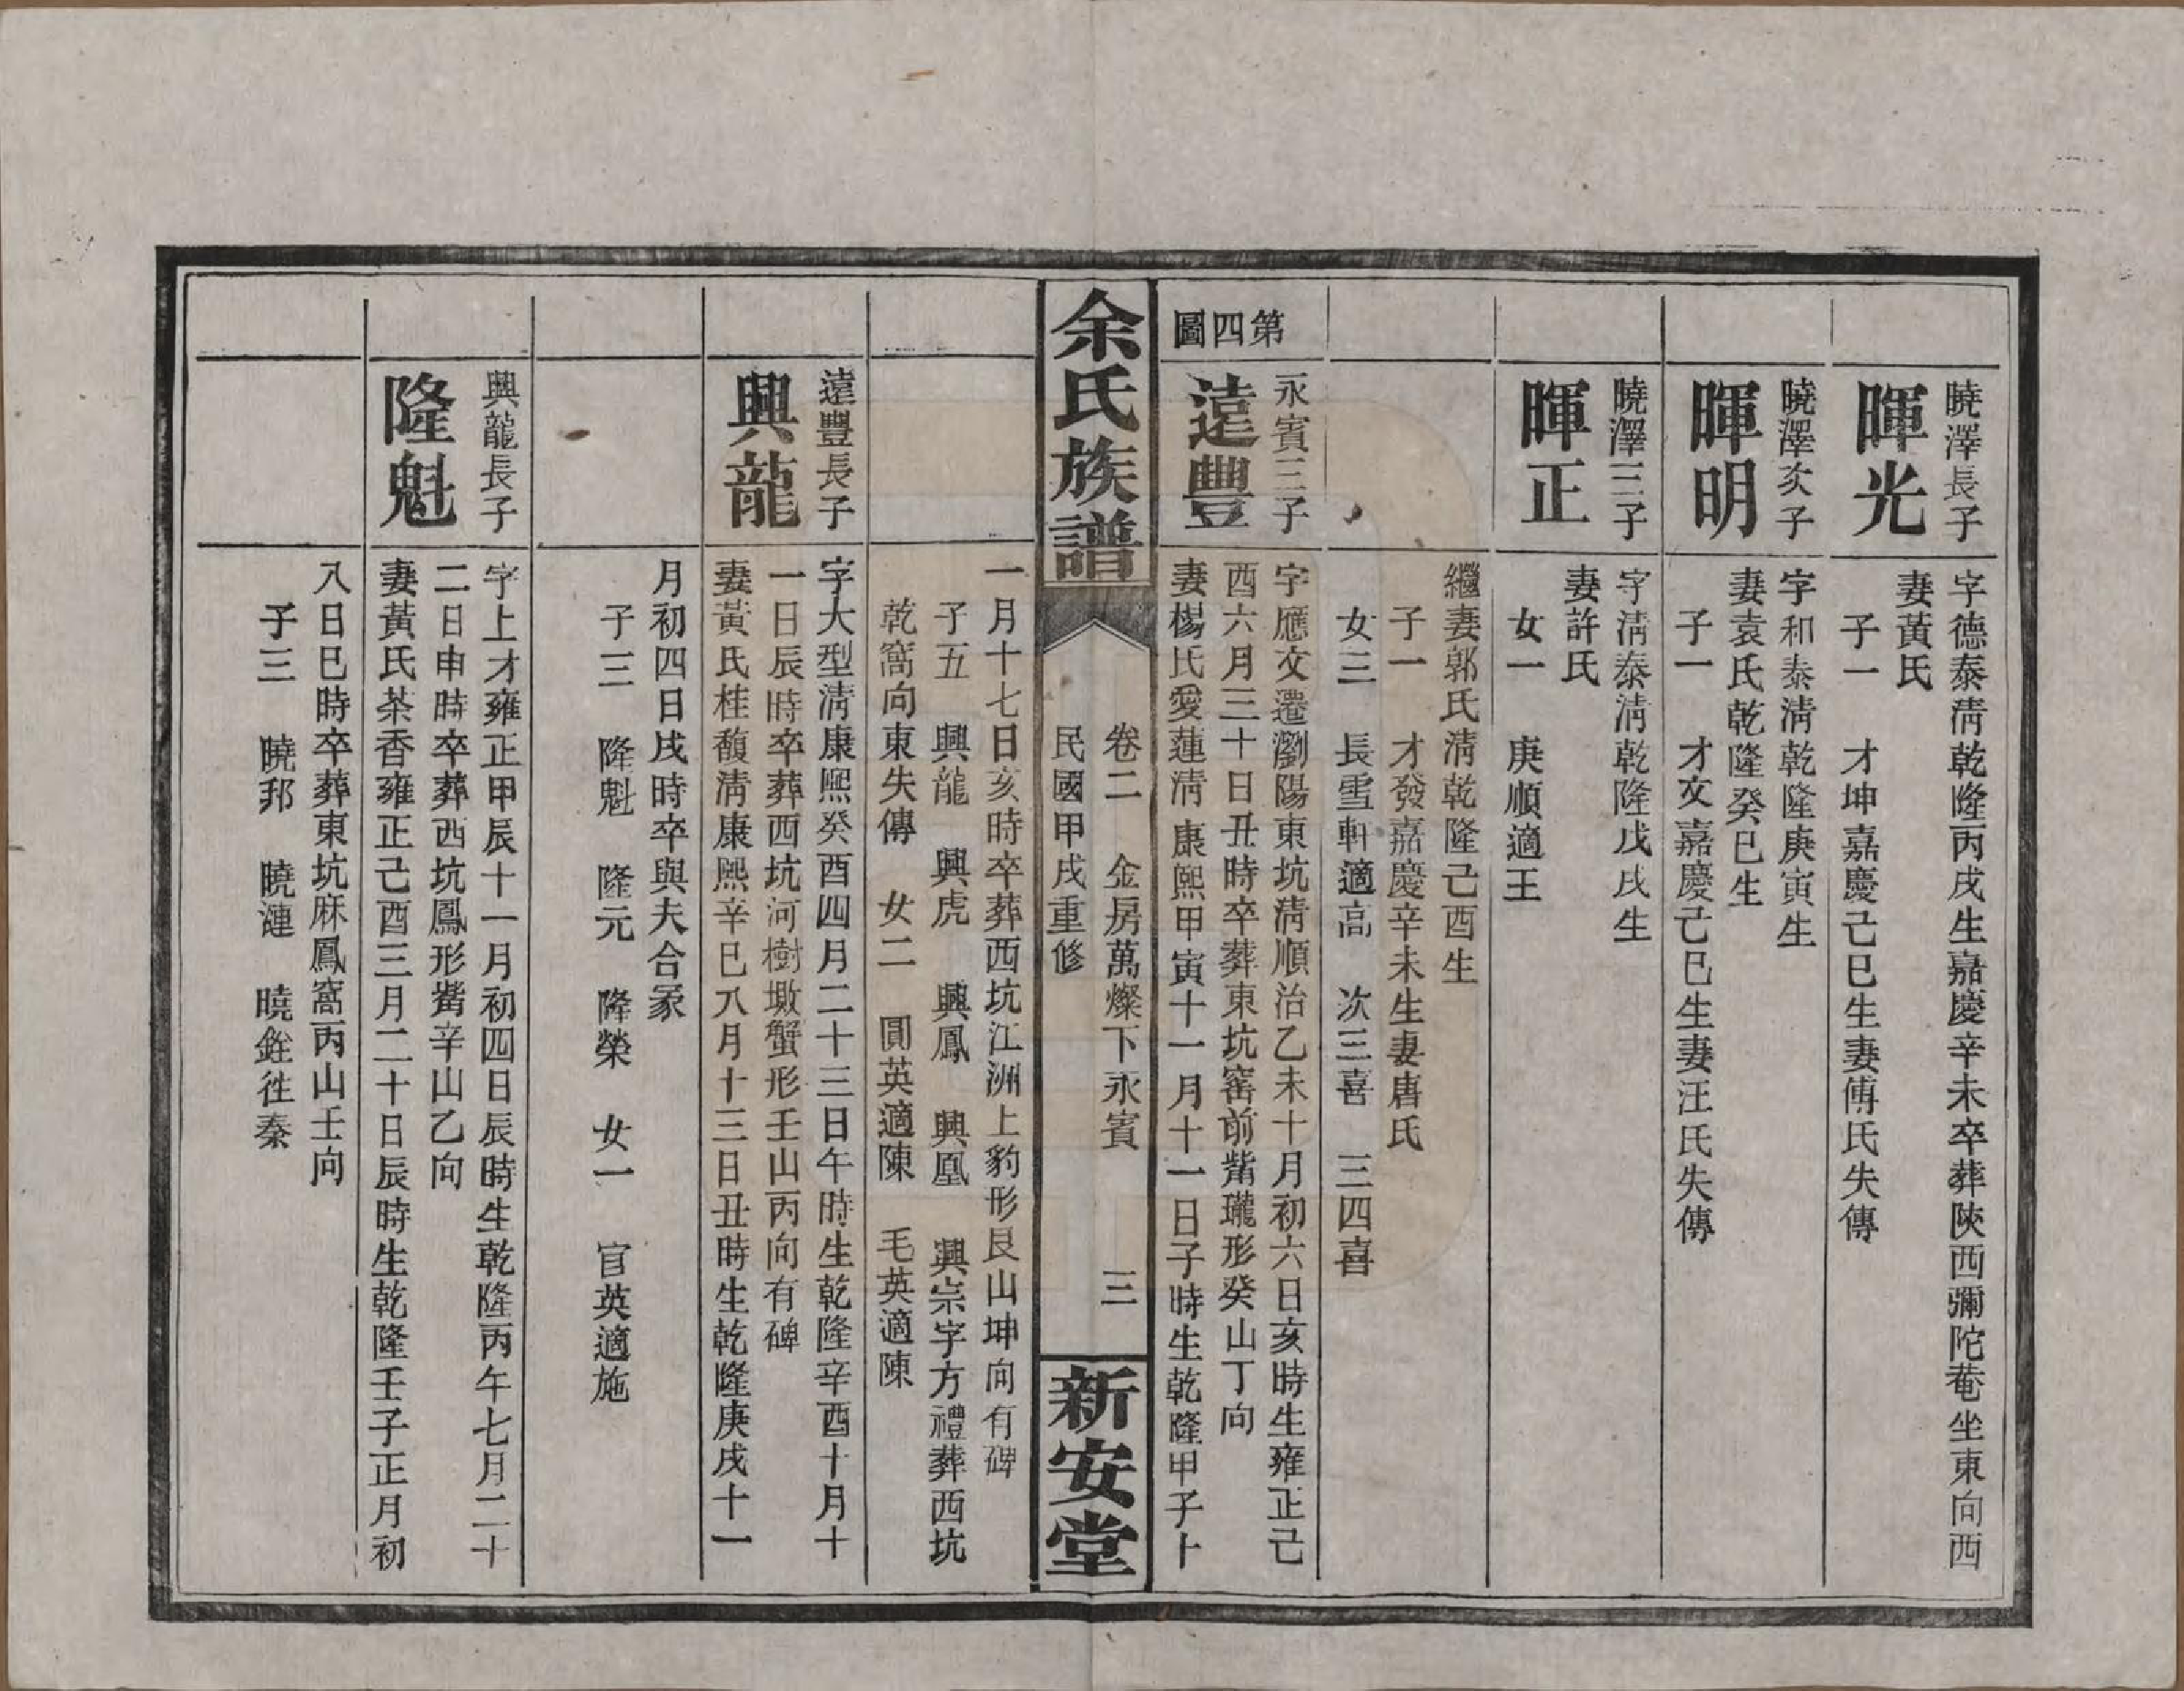 曉澤長子
暉光
字德泰淸乾隆丙戌生嘉慶辛未卒葬陝西彌陀菴坐東向西
妻黃氏
子一　才坤嘉慶己巳生妻傅氏失傳
曉澤次子
暉明
字和泰淸乾隆庚寅生
妻袁氏乾隆癸巳生
子一　才文嘉慶己巳生妻汪氏失傳
曉澤三子
暉正
字淸泰淸乾隆戊戌生
妻許氏
女一　庚順適王
繼妻郭氏淸乾隆己酉生
子一　才發嘉慶辛未生妻唐氏
女三　長雪軒適高　次三喜　三四喜
第四圖
永賓三子
遠豐
字應文遷瀏陽東坑淸順治乙未十月初六日亥時生雍正己
酉六月三十日丑時卒葬東坑窰前觜瓏形癸山丁向
妻楊氏愛蓮淸康熙甲寅十一月十一日子時生乾隆甲子十
余氏族譜
卷二　金房萬燦下永賓　三
民國甲戌重修
新安堂
一月十七日亥時卒葬西坑江洲上豹形艮山坤向有碑
子五　興龍　興虎　興鳳　興凰　興宗字方禮葬西坑
乾窩向東失傳　女二　圓英適陳　毛英適陳
遠豐長子
興龍
字大型淸康熙癸酉四月二十三日午時生乾隆辛酉十月十
一日辰時卒葬西坑河樹墩蟹形壬山丙向有碑
妻黃氏桂馥淸康熙辛巳八月十三日丑時生乾隆庚戌十一
月初四日戌時卒與夫合冢
子三　隆魁　隆元　隆榮　女一　官英適施
興龍長子
隆魁
字上才雍正甲辰十一月初四日辰時生乾隆丙午七月二十
二日申時卒葬西坑鳳形觜辛山乙向
妻黃氏茶香雍正己酉三月二十日辰時生乾隆壬子正月初
八日巳時卒葬東坑庥鳳窩丙山壬向
子三　曉邦　曉漣　曉銓徃秦